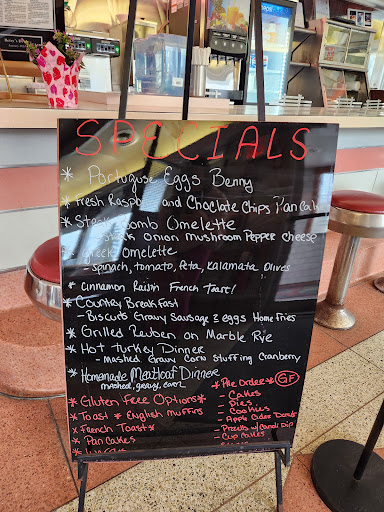 SPECIALS
* Portuguse Eggs Benny
* Fresh Raspb and Choclate Chips Pan Cake
* Steak bomb Omelette
- Steak onion mushroom Pepper cheese
* Greek Omelette
- Spinach, tomato, feta, Kalamata Olives
* Cinnamon Raisin French Toast!
* Country Breakfast
- Biscuts Gravy Sausage 2 eggs Homefries
* Grilled Reuben on Marble Rye
* Hot Turkey Dinner
- Mashed Gravy Corn Stuffing Cranberry
* Homemade Meatloaf Dinner
mashed, gravy, corn
* Gluten Free Options *
* Toast * English muffins
* French Toast *
* Pan Cakes
* Pre Order * GF
- Cakes
- Pies
- Cookies
- Apple Cider Donuts
- Pretzls w/ Candi Dip
- Cup Cakes